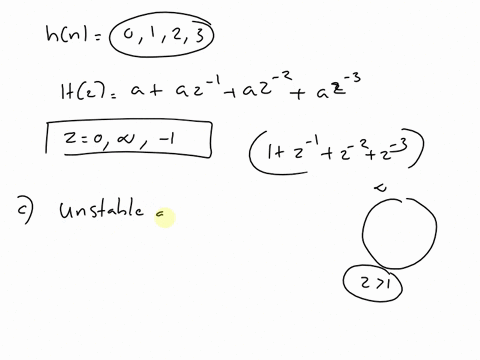 h(n) = 0, 1, 2, 3
H(z) = a + az⁻¹ + az⁻² + az⁻³
z = 0, ∞, -1
(1 + z⁻¹ + z⁻² + z⁻³)
c) unstable
z > 1